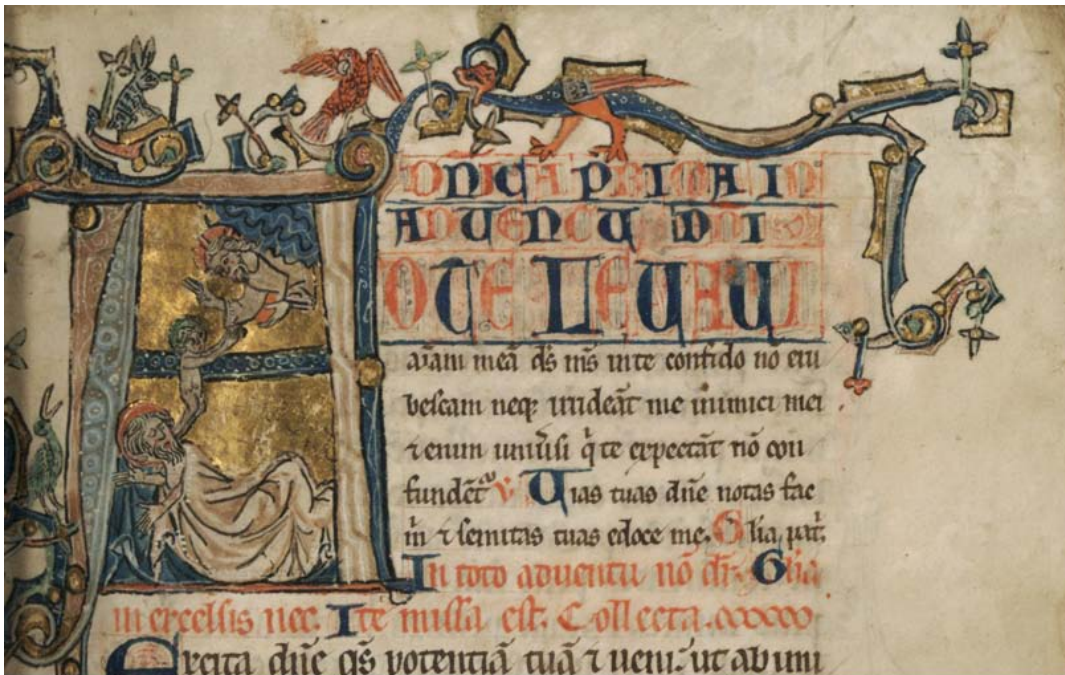 DÑICA PRIMA IN
ADVENTU DNI
AD TE LEVAVI
aīam meā ds̄ ms̄ in te confido nō eru
bescam neqꝫ irrideāt me inimici mei
⁊ enim uniūsi q̄ te expectāt nō con
fundēt᷑ V Uias tuas dn̄e notas fac
m̄ ⁊ semitas tuas edoce me. Glīa pat̄.
In toto aduentu nō dr̄. Glīa
in excelsis nec. Ite missa est. Collecta.
Excita dn̄e qs̄ potentiā tuā ⁊ ueni. ut ab imi